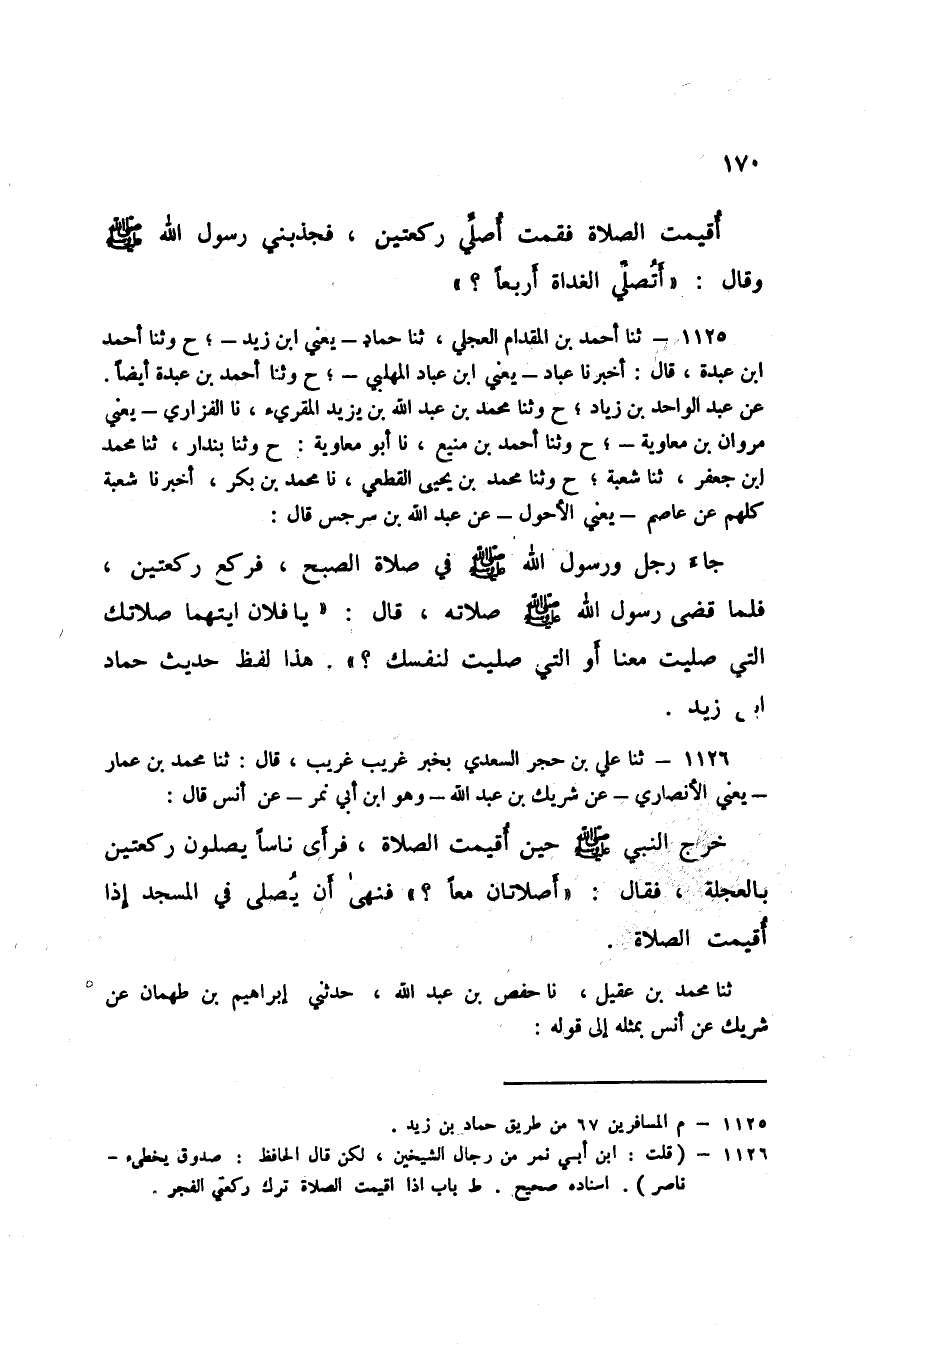 ١٧٠
أُقيمت الصلاة فقمت أُصلِّي ركعتين ، فجذبني رسول الله ﷺ
وقال : «أَتُصلِّي الغداة أَربعاً ؟»
١١٢٥ – ثنا أحمد بن المقدام العجلي ، ثنا حماد – يعني ابن زيد – ؛ ح وثنا أحمد
ابن عبدة ، قال : أخبرنا عباد – يعني ابن عباد المهلبي – ؛ ح وثنا أحمد بن عبدة أيضاً .
عن عبد الواحد بن زياد ؛ ح وثنا محمد بن عبد الله بن يزيد المقريء ، نا الفزاري – يعني
مروان بن معاوية – ؛ ح وثنا أحمد بن منيع ، نا أبو معاوية : ح وثنا بندار ، ثنا محمد
ابن جعفر ، ثنا شعبة ؛ ح وثنا محمد بن يحيى القطعي ، نا محمد بن بكر ، أخبرنا شعبة
كلهم عن عاصم – يعني الأحول – عن عبد الله بن سرجس قال :
جاء رجل ورسول الله ﷺ في صلاة الصبح ، فركع ركعتين ،
فلما قضى رسول الله ﷺ صلاته ، قال : « يافلان ايتهما صلاتك
التي صليت معنا أَو التي صليت لنفسك ؟» . هذا لفظ حديث حماد
ابن زيد .
١١٢٦ – ثنا علي بن حجر السعدي بخبر غريب غريب ، قال : ثنا محمد بن عمار
– يعني الأنصاري – عن شريك بن عبد الله – وهو ابن أبي نمر – عن أنس قال :
خرج النبي ﷺ حين أُقيمت الصلاة ، فرأَى ناساً يصلون ركعتين
بالعجلة ، فقال : «أَصلاتان معاً ؟» فنهىٰ أَن يُصلى في المسجد إذا
أُقيمت الصلاة .
ثنا محمد بن عقيل ، نا حفص بن عبد الله ، حدثني إبراهيم بن طهمان عن
شريك عن أنس بمثله إلى قوله :
١١٢٥ – م المسافرين ٦٧ من طريق حماد بن زيد .
١١٢٦ – (قلت : ابن أبي نمر من رجال الشيخين ، لكن قال الحافظ : صدوق يخطىء –
ناصر ) . اسناده صحيح . ط باب اذا اقيمت الصلاة ترك ركعتي الفجر .